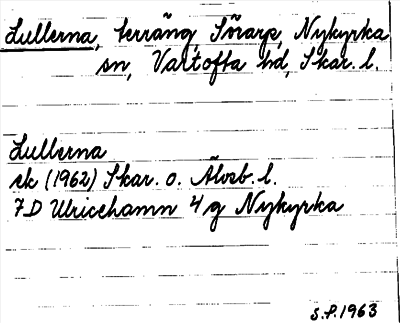 Lullerna, terräng Sörarp, Nykyrka
sn, Vartofta hd, Skar. l.
Lullerna
ek (1962) Skar. o. Älvsb. l.
7D Ulricehamn 4g Nykyrka
S.P. 1963